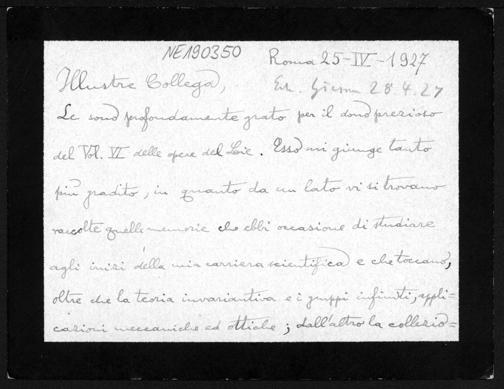 NE190350
Roma 25-IV-1927
Illustre Collega,
Erh. Giessen 28.4.27
Le sono profondamente grato per il dono prezioso
del Vol. VI delle opere del Lie. Esso mi giunge tanto
più gradito, in quanto da un lato vi si trovano
raccolte quelle memorie che ebbi occasione di studiare
agli inizi della mia carriera scientifica e che toccano,
oltre che la teoria invariantiva e i gruppi infiniti, appli-
cazioni meccaniche ed ottiche; dall'altro la collezio-